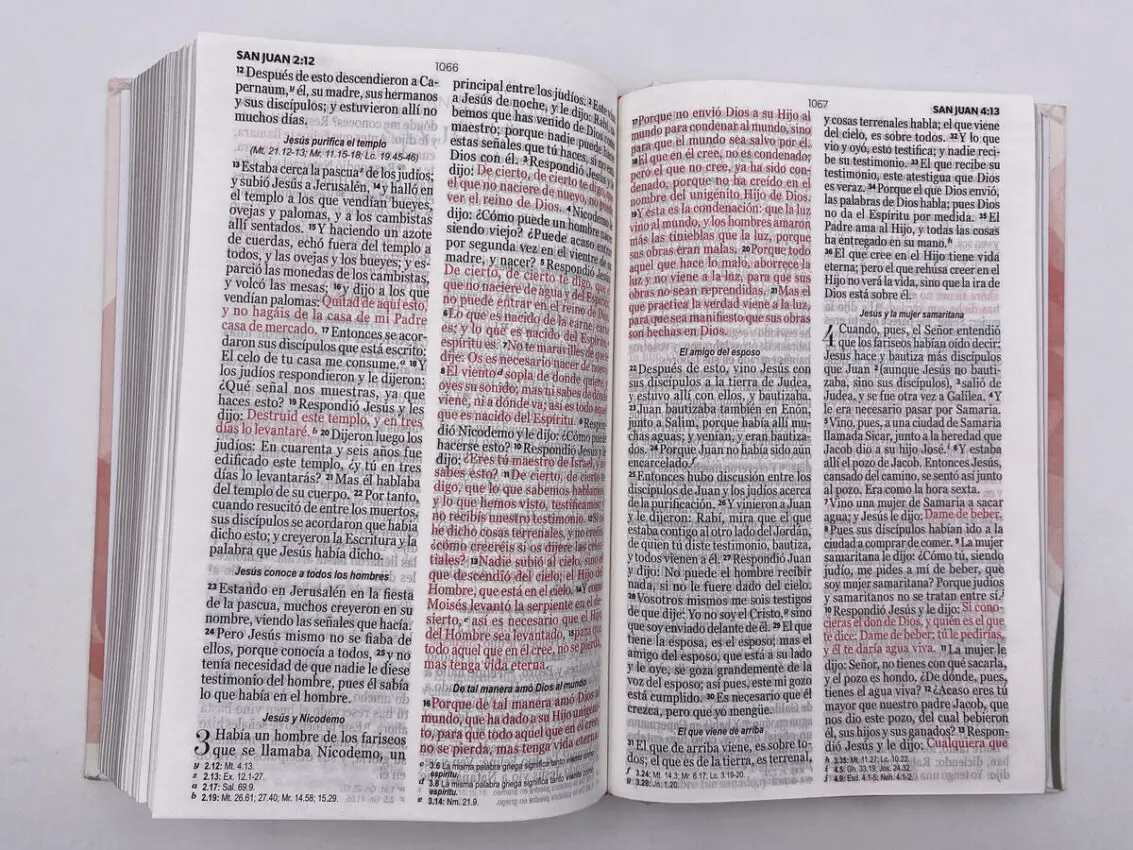 SAN JUAN 2:12
1066
12 Después de esto descendieron a Ca-
pernaum,y él, su madre, sus hermanos
y sus discípulos; y estuvieron allí no
muchos días.
Jesús purifica el templo
(Mt. 21.12-13; Mr. 11.15-18; Lc. 19.45-46)
13 Estaba cerca la pascuaz de los judíos;
y subió Jesús a Jerusalén, 14 y halló en
el templo a los que vendían bueyes,
ovejas y palomas, y a los cambistas
allí sentados. 15 Y haciendo un azote
de cuerdas, echó fuera del templo a
todos, y las ovejas y los bueyes; y es-
parció las monedas de los cambistas,
y volcó las mesas; 16 y dijo a los que
vendían palomas: Quitad de aquí esto,
y no hagáis de la casa de mi Padre
casa de mercado. 17 Entonces se acor-
daron sus discípulos que está escrito:
El celo de tu casa me consume.a 18 Y
los judíos respondieron y le dijeron:
¿Qué señal nos muestras, ya que
haces esto? 19 Respondió Jesús y les
dijo: Destruid este templo, y en tres
días lo levantaré.b 20 Dijeron luego los
judíos: En cuarenta y seis años fue
edificado este templo, ¿y tú en tres
días lo levantarás? 21 Mas él hablaba
del templo de su cuerpo. 22 Por tanto,
cuando resucitó de entre los muertos,
sus discípulos se acordaron que había
dicho esto; y creyeron la Escritura y la
palabra que Jesús había dicho.
Jesús conoce a todos los hombres
23 Estando en Jerusalén en la fiesta
de la pascua, muchos creyeron en su
nombre, viendo las señales que hacía.
24 Pero Jesús mismo no se fiaba de
ellos, porque conocía a todos, 25 y no
tenía necesidad de que nadie le diese
testimonio del hombre, pues él sabía
lo que había en el hombre.
Jesús y Nicodemo
3 Había un hombre de los fariseos
que se llamaba Nicodemo, un
y 2.12: Mt. 4.13.
z 2.13: Ex. 12.1-27.
a 2.17: Sal. 69.9.
b 2.19: Mt. 26.61; 27.40; Mr. 14.58; 15.29.
principal entre los judíos. 2 Este vino
a Jesús de noche, y le dijo: Rabí, sa-
bemos que has venido de Dios como
maestro; porque nadie puede hacer
estas señales que tú haces, si no está
Dios con él. 3 Respondió Jesús y le
dijo: De cierto, de cierto te digo, que
el que no naciere de nuevo, no puede
ver el reino de Dios. 4 Nicodemo le
dijo: ¿Cómo puede un hombre nacer
siendo viejo? ¿Puede acaso entrar
por segunda vez en el vientre de su
madre, y nacer? 5 Respondió Jesús:
De cierto, de cierto te digo, que el
que no naciere de agua y del Espíritu,
no puede entrar en el reino de Dios.
6 Lo que es nacido de la carne, carne
es; y lo que es nacido del Espíritu,
espíritu es. 7 No te maravilles de que te
dije: Os es necesario nacer de nuevo.
8 El vientod sopla de donde quiere, y
oyes su sonido; mas ni sabes de dónde
viene, ni a dónde va; así es todo aquel
que es nacido del Espíritu. 9 Respon-
dió Nicodemo y le dijo: ¿Cómo puede
hacerse esto? 10 Respondió Jesús y le
dijo: ¿Eres tú maestro de Israel, y no
sabes esto? 11 De cierto, de cierto te
digo, que lo que sabemos hablamos,
y lo que hemos visto, testificamos;
no recibís nuestro testimonio. 12 Si os
he dicho cosas terrenales, y no creéis,
¿cómo creeréis si os dijere las celes-
tiales? 13 Nadie subió al cielo, sino el
que descendió del cielo; el Hijo del
Hombre, que está en el cielo. 14 Y como
Moisés levantó la serpiente en el de-
sierto,e así es necesario que el Hijo
del Hombre sea levantado, 15 para que
todo aquel que en él cree, no se pierda,
mas tenga vida eterna.
De tal manera amó Dios al mundo
16 Porque de tal manera amó Dios al
mundo, que ha dado a su Hijo unigéni-
to, para que todo aquel que en él cree,
no se pierda, mas tenga vida eterna.
c 3.6 La misma palabra griega significa tanto viento como
espíritu.
d 3.8 La misma palabra griega significa tanto viento como
espíritu.
e 3.14: Nm. 21.9.
1067
SAN JUAN 4:13
17 Porque no envió Dios a su Hijo al
mundo para condenar al mundo, sino
para que el mundo sea salvo por él.
18 El que en él cree, no es condenado;
pero el que no cree, ya ha sido con-
denado, porque no ha creído en el
nombre del unigénito Hijo de Dios.
19 Y esta es la condenación: que la luz
vino al mundo, y los hombres amaron
más las tinieblas que la luz, porque
sus obras eran malas. 20 Porque todo
aquel que hace lo malo, aborrece la
luz y no viene a la luz, para que sus
obras no sean reprendidas. 21 Mas el
que practica la verdad viene a la luz,
para que sea manifiesto que sus obras
son hechas en Dios.
El amigo del esposo
22 Después de esto, vino Jesús con
sus discípulos a la tierra de Judea,
y estuvo allí con ellos, y bautizaba.
23 Juan bautizaba también en Enón,
junto a Salim, porque había allí mu-
chas aguas; y venían, y eran bautiza-
dos. 24 Porque Juan no había sido aún
encarcelado.f
25 Entonces hubo discusión entre los
discípulos de Juan y los judíos acerca
de la purificación. 26 Y vinieron a Juan
y le dijeron: Rabí, mira que el que
estaba contigo al otro lado del Jordán,
de quien tú diste testimonio, bautiza,
y todos vienen a él. 27 Respondió Juan
y dijo: No puede el hombre recibir
nada, si no le fuere dado del cielo.
28 Vosotros mismos me sois testigos
de que dije: Yo no soy el Cristo,g sino
que soy enviado delante de él. 29 El que
tiene la esposa, es el esposo; mas el
amigo del esposo, que está a su lado
y le oye, se goza grandemente de la
voz del esposo; así pues, este mi gozo
está cumplido. 30 Es necesario que él
crezca, pero que yo mengüe.
El que viene de arriba
31 El que de arriba viene, es sobre to-
dos; el que es de la tierra, es terrenal,
f 3.24: Mt. 14.3; Mr. 6.17; Lc. 3.19-20.
g 3.28: Jn. 1.20.
y cosas terrenales habla; el que viene
del cielo, es sobre todos. 32 Y lo que
vio y oyó, esto testifica; y nadie recibe
su testimonio. 33 El que recibe su
testimonio, este atestigua que Dios
es veraz. 34 Porque el que Dios envió,
las palabras de Dios habla; pues Dios
no da el Espíritu por medida. 35 El
Padre ama al Hijo, y todas las cosas
ha entregado en su mano.h
36 El que cree en el Hijo tiene vida
eterna; pero el que rehúsa creer en el
Hijo no verá la vida, sino que la ira de
Dios está sobre él.
Jesús y la mujer samaritana
4 Cuando, pues, el Señor entendió
que los fariseos habían oído decir:
Jesús hace y bautiza más discípulos
que Juan 2 (aunque Jesús no bauti-
zaba, sino sus discípulos), 3 salió de
Judea, y se fue otra vez a Galilea. 4 Y
le era necesario pasar por Samaria.
5 Vino, pues, a una ciudad de Samaria
llamada Sicar, junto a la heredad que
Jacob dio a su hijo José.i 6 Y estaba
allí el pozo de Jacob. Entonces Jesús,
cansado del camino, se sentó así junto
al pozo. Era como la hora sexta.
7 Vino una mujer de Samaria a sacar
agua; y Jesús le dijo: Dame de beber.
8 Pues sus discípulos habían ido a la
ciudad a comprar de comer. 9 La mujer
samaritana le dijo: ¿Cómo tú, siendo
judío, me pides a mí de beber, que
soy mujer samaritana? Porque judíos
y samaritanos no se tratan entre sí.j
10 Respondió Jesús y le dijo: Si cono-
cieras el don de Dios, y quién es el que
te dice: Dame de beber; tú le pedirías,
y él te daría agua viva. 11 La mujer le
dijo: Señor, no tienes con qué sacarla,
y el pozo es hondo. ¿De dónde, pues,
tienes el agua viva? 12 ¿Acaso eres tú
mayor que nuestro padre Jacob, que
nos dio este pozo, del cual bebieron
él, sus hijos y sus ganados? 13 Respon-
dió Jesús y le dijo: Cualquiera que
h 3.35: Mt. 11.27; Lc. 10.22.
i 4.5: Gn. 33.19; Jos. 24.32.
j 4.9: Esd. 4.1-5; Neh. 4.1-2.